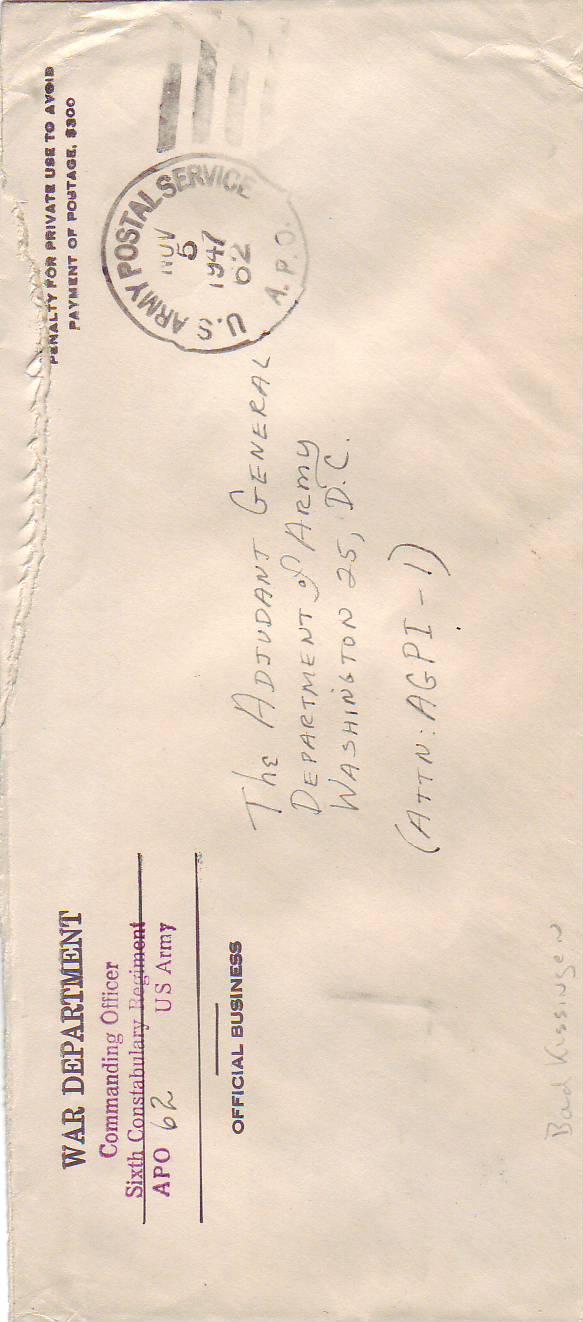 WAR DEPARTMENT
Commanding Officer
Sixth Constabulary Regiment
APO 62 US Army
OFFICIAL BUSINESS
PENALTY FOR PRIVATE USE TO AVOID
PAYMENT OF POSTAGE, $300
U.S ARMY POSTAL SERVICE
NOV
5
1947
62
A.P.O.
The ADJUDANT GENERAL
DEPARTMENT of ARMY
WASHINGTON 25, D.C.
(ATTN: AGPI-1)
Bad Kissingen